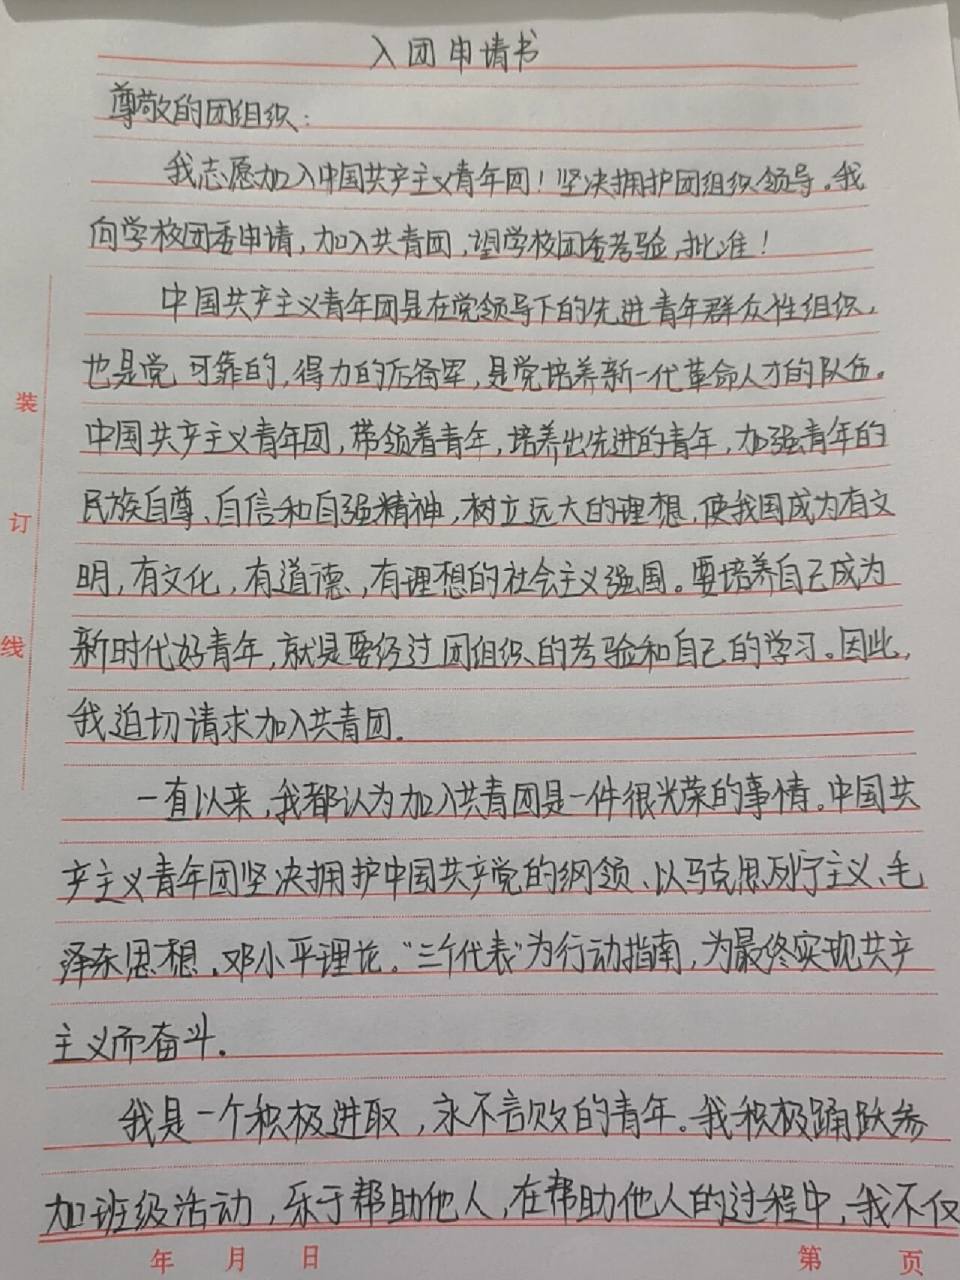 入团申请书
尊敬的团组织：
我志愿加入中国共产主义青年团！坚决拥护团组织领导。我
向学校团委申请，加入共青团，望学校团委考验，批准！
中国共产主义青年团是在党领导下的先进青年群众性组织，
也是党可靠的，得力的后备军，是党培养新一代革命人才的队伍。
中国共产主义青年团，带领着青年，培养出先进的青年，加强青年的
民族自尊、自信和自强精神，树立远大的理想，使我国成为有文
明，有文化，有道德，有理想的社会主义强国。要培养自己成为
新时代好青年，就是要经过团组织的考验和自己的学习。因此，
我迫切请求加入共青团.
一直以来，我都认为加入共青团是一件很光荣的事情。中国共
产主义青年团坚决拥护中国共产党的纲领、以马克思列宁主义、毛
泽东思想。邓小平理论。“三个代表”为行动指南，为最终实现共产
主义而奋斗.
我是一个积极进取，永不言败的青年。我积极踊跃参
加班级活动，乐于帮助他人，在帮助他人的过程中，我不仅
装订线
年 月 日 第 页